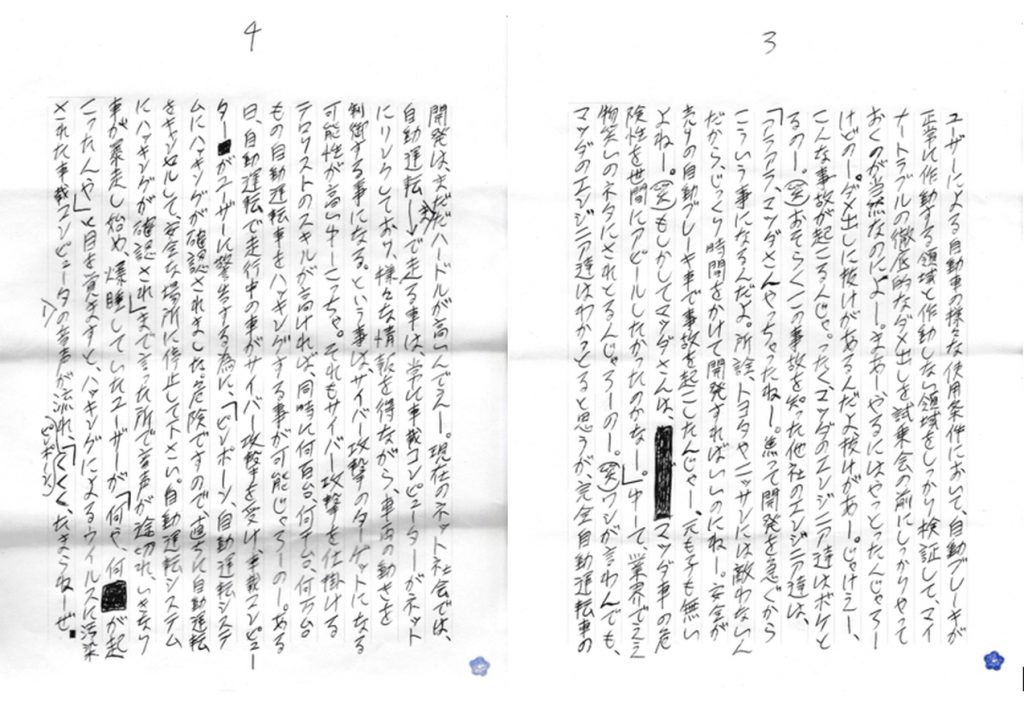 3
ユーザーによる自動車の様々な使用条件において、自動ブレーキが
正常に作動する領域と作動しない領域をしっかり検証して、マイ
ナートラブルの徹底的なダメ出しを試乗会の前にしっかりやって
おくのが当然なのによー。まぁー、やるにはやっとったんじゃろー
けどのー。ダメ出しに抜けがあるんだよ抜けがあー。じゃけえー、
こんな事故が起こるんじゃ。ったく、マツダのエンジニア達はボケと
るのー。(笑)おそらくこの事故を笑った他社のエンジニア達は、
「アラアラ、マツダさんやっちゃったねー。焦って開発を急ぐから
こういう事になるんだよ。所詮、トヨタやニッサンには敵わないん
だから、じっくり時間をかけて開発すればいいのにねー。安全が
売りの自動ブレーキ車で事故を起こしたんじゃー、元も子も無い
よねー。(笑)もしかしてマツダさんは、マツダ車の危
険性を世間にアピールしたかったのかなー。」ゆーて、業界でええ
物笑いのネタにされとるんじゃろーのー。(笑)ワシが言わんでも、
マツダのエンジニア達はわかっとると思うが、完全自動運転車の
4
開発は、まだまだハードルが高いんでえー。現在のネット社会では、
自動運転で走る車は、常に車載コンピューターがネット
にリンクしており、様々な情報を得ながら、車両の動きを
制御する事になる。という事は、サイバー攻撃のターゲットになる
可能性が高いゆーこっちゃ。それもサイバー攻撃を仕掛ける
テロリストのスキルが高ければ、同時に何百台、何千台、何万台
もの自動運転車をハッキングする事が可能じゃろーのー。ある
日、自動運転で走行中の車がサイバー攻撃を受け、車載コンピュー
ターがユーザーに警告する為に、「ピンポーン、自動運転システ
ムにハッキングが確認されました。危険ですので、直ちに自動運転
をキャンセルして、安全な場所に停止して下さい。自動運転システム
にハッキングが確認され」まで言った所で音声が途切れ、いきなり
車が暴走し始め、爆睡していたユーザーが、「何や、何が起
こったんや」と目を覚ますと、ハッキングによるウイルスに汚染
された車載コンピュータの音声が流れ、「くくく、